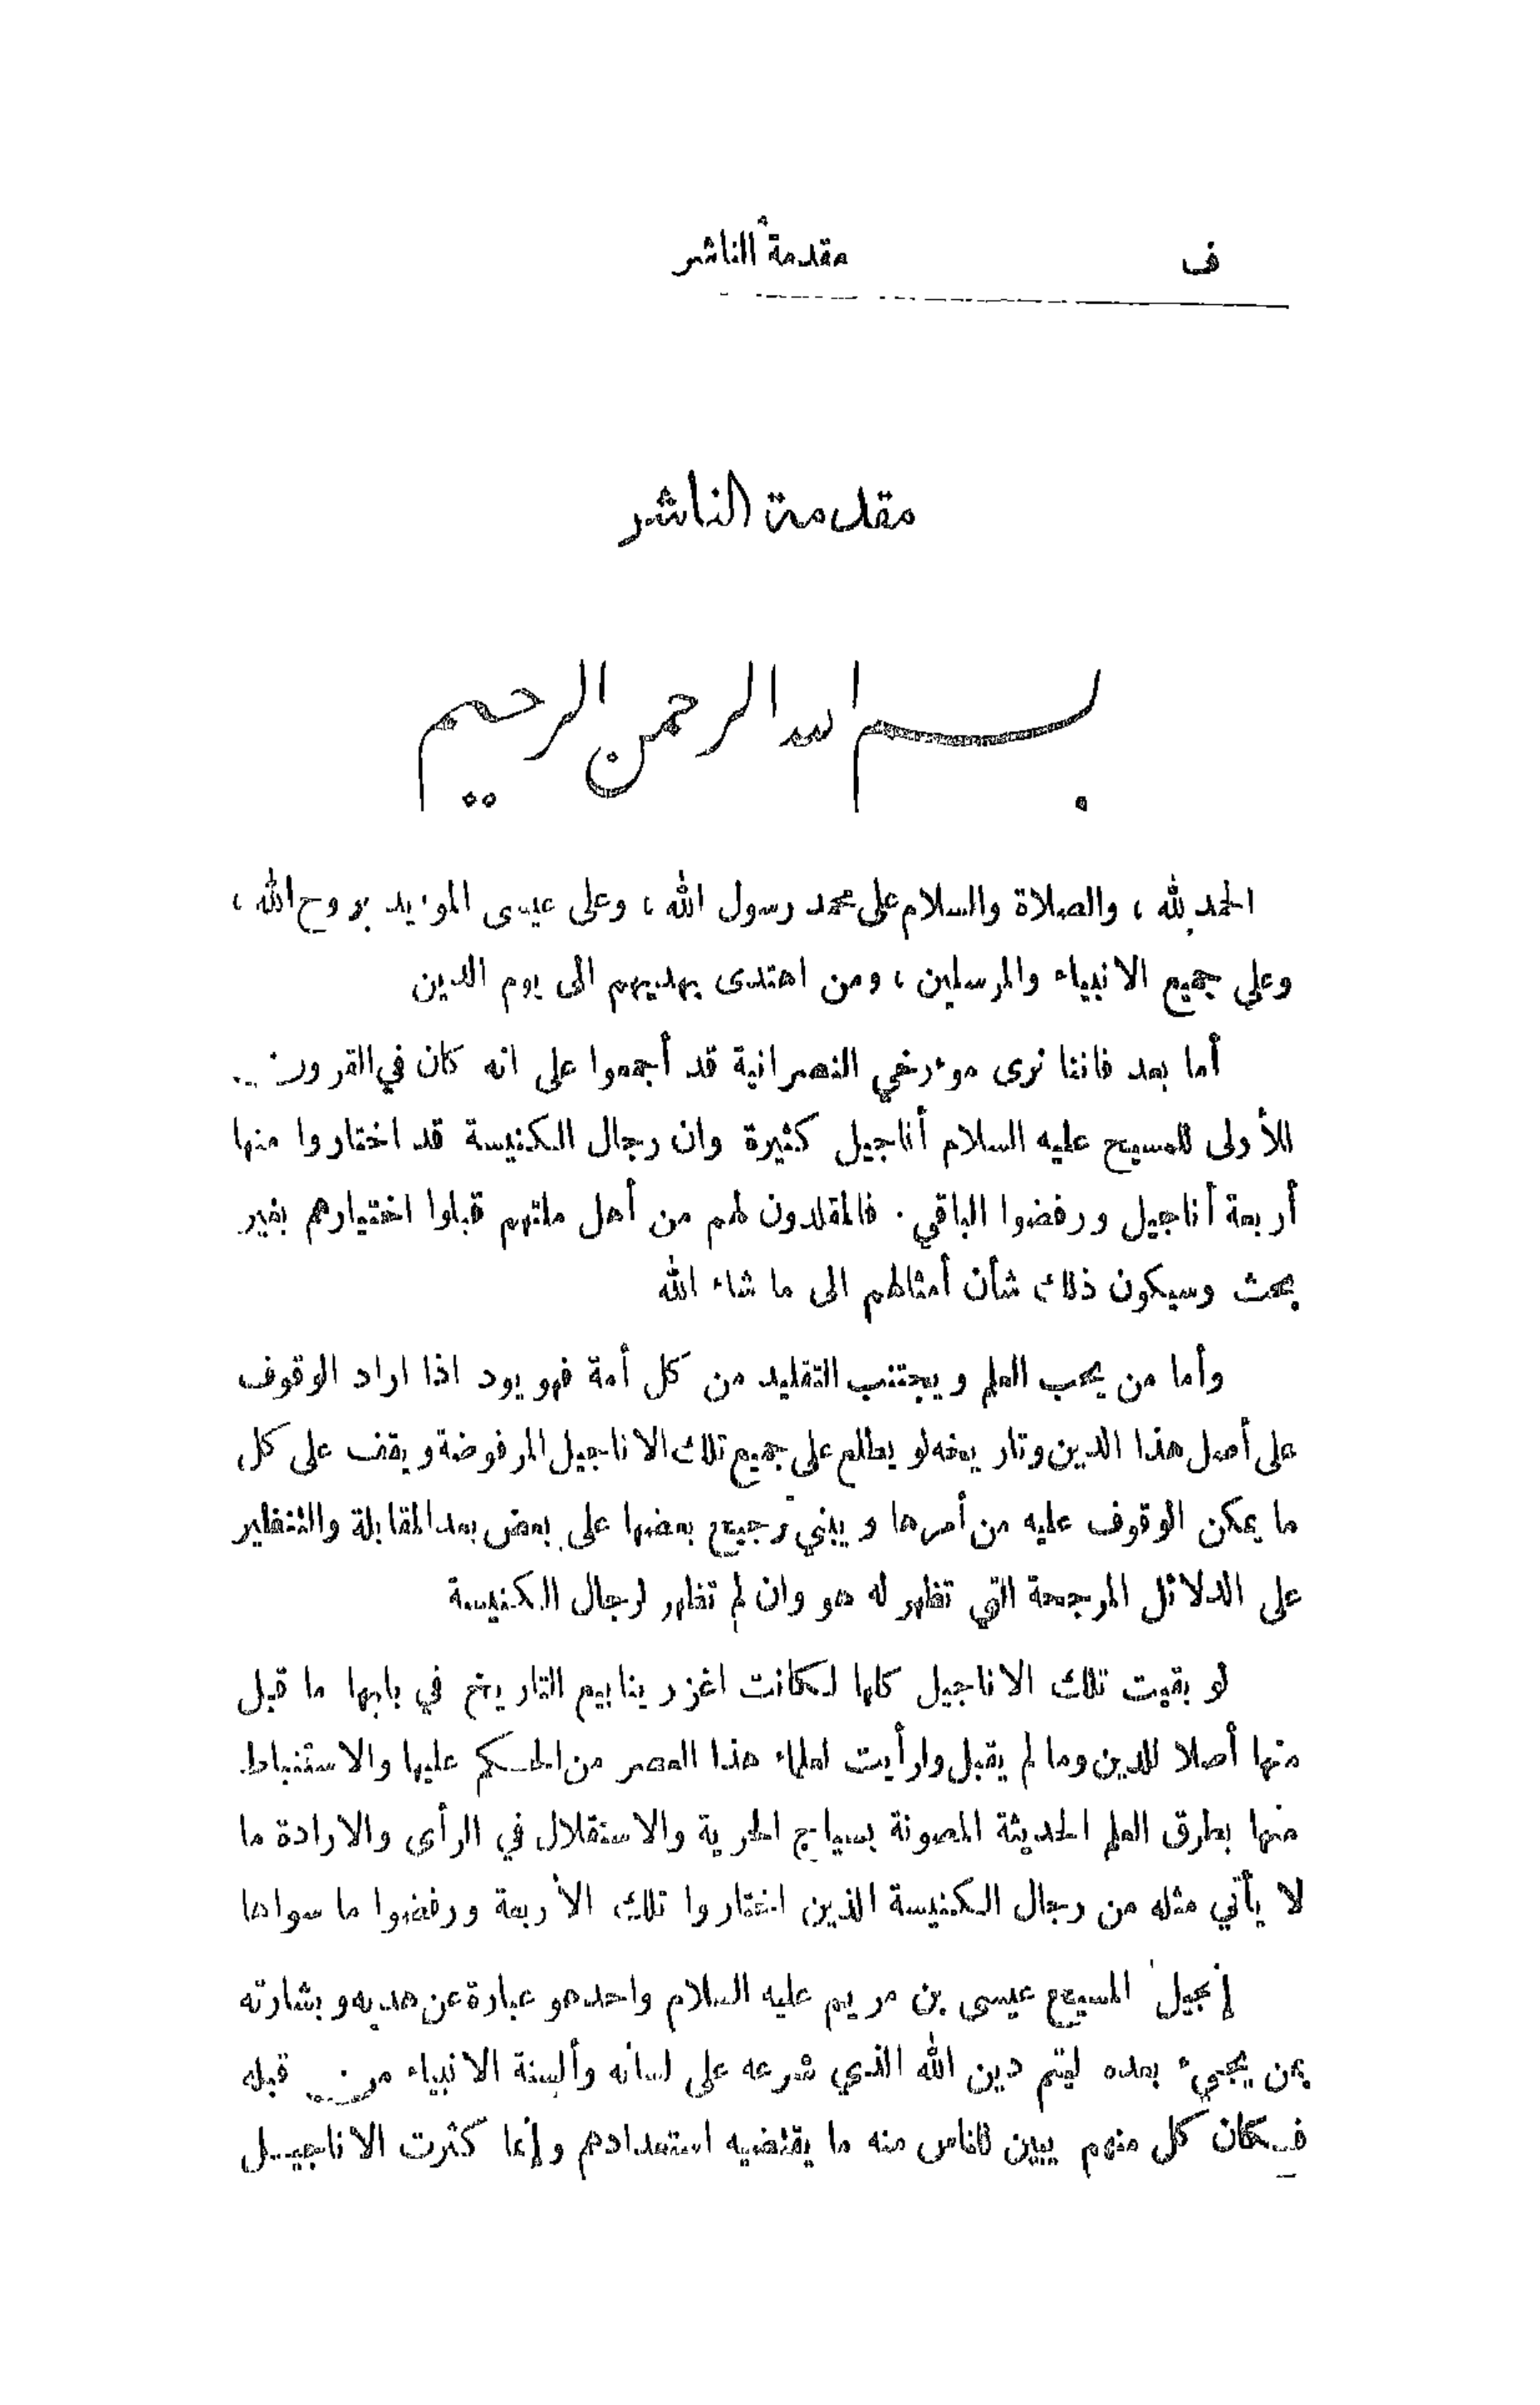 ف
مقدمة الناشر
مقدمة الناشر
بسم الله الرحمن الرحيم
الحمد لله ، والصلاة والسلام على محمد رسول الله ، وعلى عيسى المؤيد بروح الله ،
وعلى جميع الانبياء والمرسلين ، ومن اهتدى بهديهم الى يوم الدين
أما بعد فاننا نرى مؤرخي النصرانية قد أجمعوا على انه كان في القرون
الأولى للمسيح عليه السلام أناجيل كثيرة وان رجال الكنيسة قد اختاروا منها
أربعة أناجيل ورفضوا الباقي . فالمقلدون لهم من أهل ملتهم قبلوا اختيارهم بغير
بحث وسيكون ذلك شأن أمثالهم الى ما شاء الله
وأما من يحب العلم ويجتنب التقليد من كل أمة فهو يود اذا اراد الوقوف
على أصل هذا الدين وتاريخه لو يطلع على جميع تلك الاناجيل المرفوضة ويقف على كل
ما يمكن الوقوف عليه من أمرها ويبني ترجيح بعضها على بعض بعد المقابلة والتنظير
على الدلائل المرجحة التي تظهر له هو وان لم تظهر لرجال الكنيسة
لو بقيت تلك الاناجيل كلها لكانت اغزر ينابيع التاريخ في بابها ما قبل
منها أصلا للدين وما لم يقبل ولرأيت لعلماء هذا العصر من الحكم عليها والاستنباط
منها بطرق العلم الحديثة المصونة بسياج الحرية والاستقلال في الرأى والارادة ما
لا يأتي مثله من رجال الكنيسة الذين اختاروا تلك الأربعة ورفضوا ما سواها
إنجيل المسيح عيسى بن مريم عليه السلام واحد هو عبارة عن هديه وبشارته
بمن يجيء بعده ليتم دين الله الذي شرعه على لسانه وألسنة الانبياء من قبله
فكان كل منهم يبين للناس منه ما يقتضيه استعدادهم وإنما كثرت الاناجيل